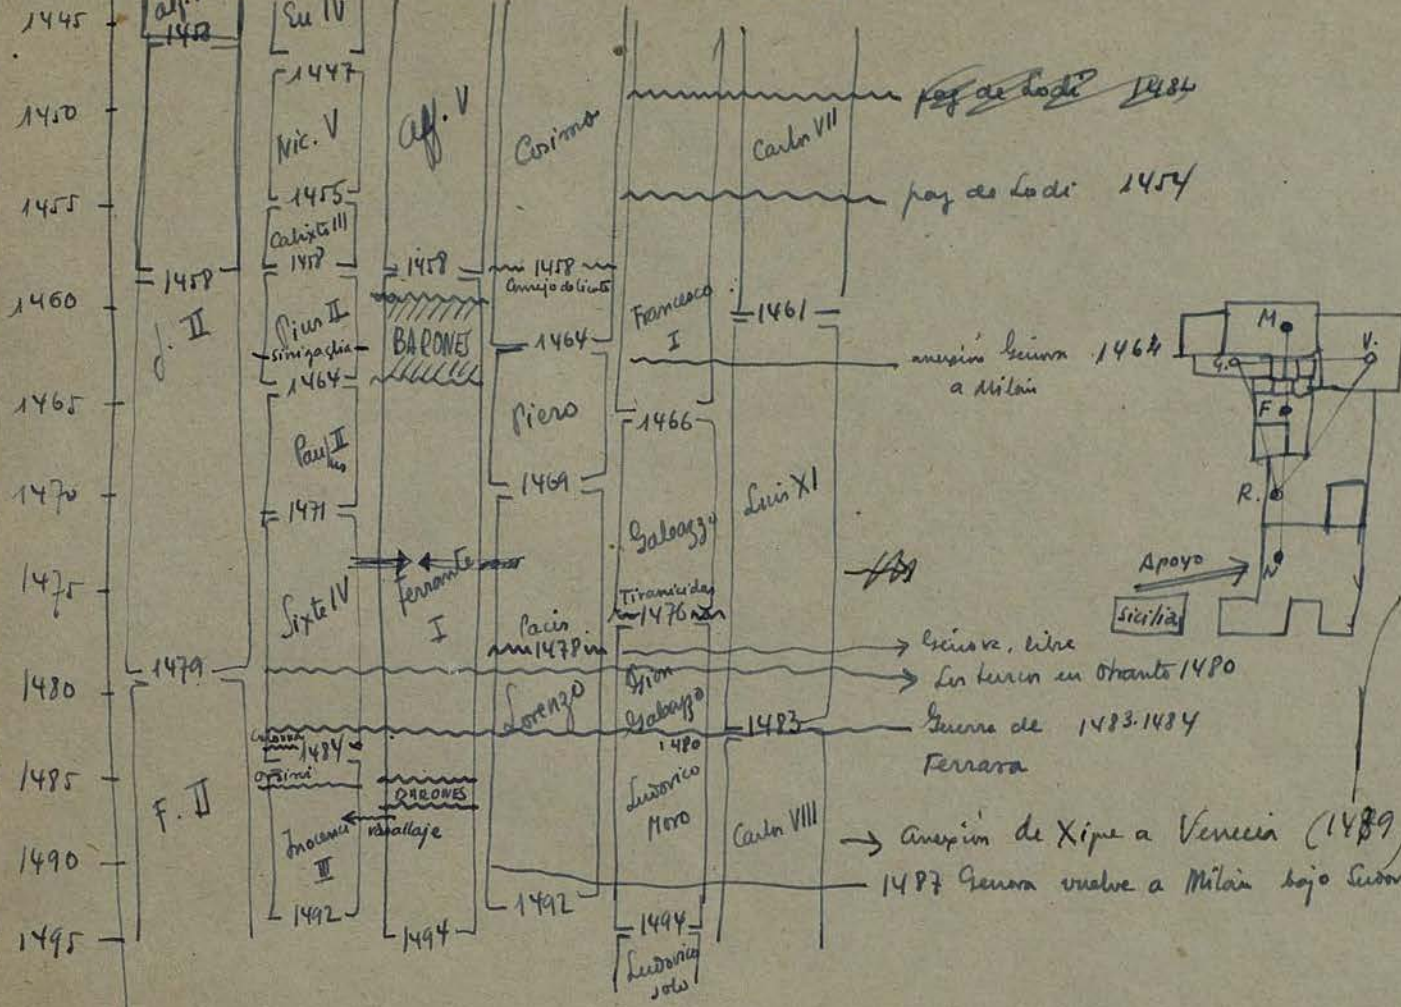 1445
1450
1455
1460
1465
1470
1475
1480
1485
1490
1495
1458
J. II
1479
F. II
Eu IV
1447
Nic. V
1455
Calixto III
1458
Pius II
Sinigaglia
1464
Paulus II
1471
Sixte IV
1484
Orsini
Inocenci III
1492
Aff. V
1458
BARONES
Ferrante I
BARONES
vasallaje
1494
Cosimo
1458
1464
Piero
1469
Pacis
1478
Lorenzo
1492
Francesco I
1466
Galeazzo
Tiranicidas
1476
Gian Galeazzo
1480
Ludovico Moro
1494
Ludovico solo
Carlos VII
1461
Luis XI
1483
Carlos VIII
paz de Lodi 1484
paz de Lodi 1454
anexión Génova 1464
a Milán
Génova, libre
Los turcos en Otranto 1480
Guerra de 1483-1484
Ferrara
anexión de Xipre a Venecia (1489)
1487 Genova vuelve a Milán bajo
M
V.
G.
F
R.
N
Apoyo
Sicilia